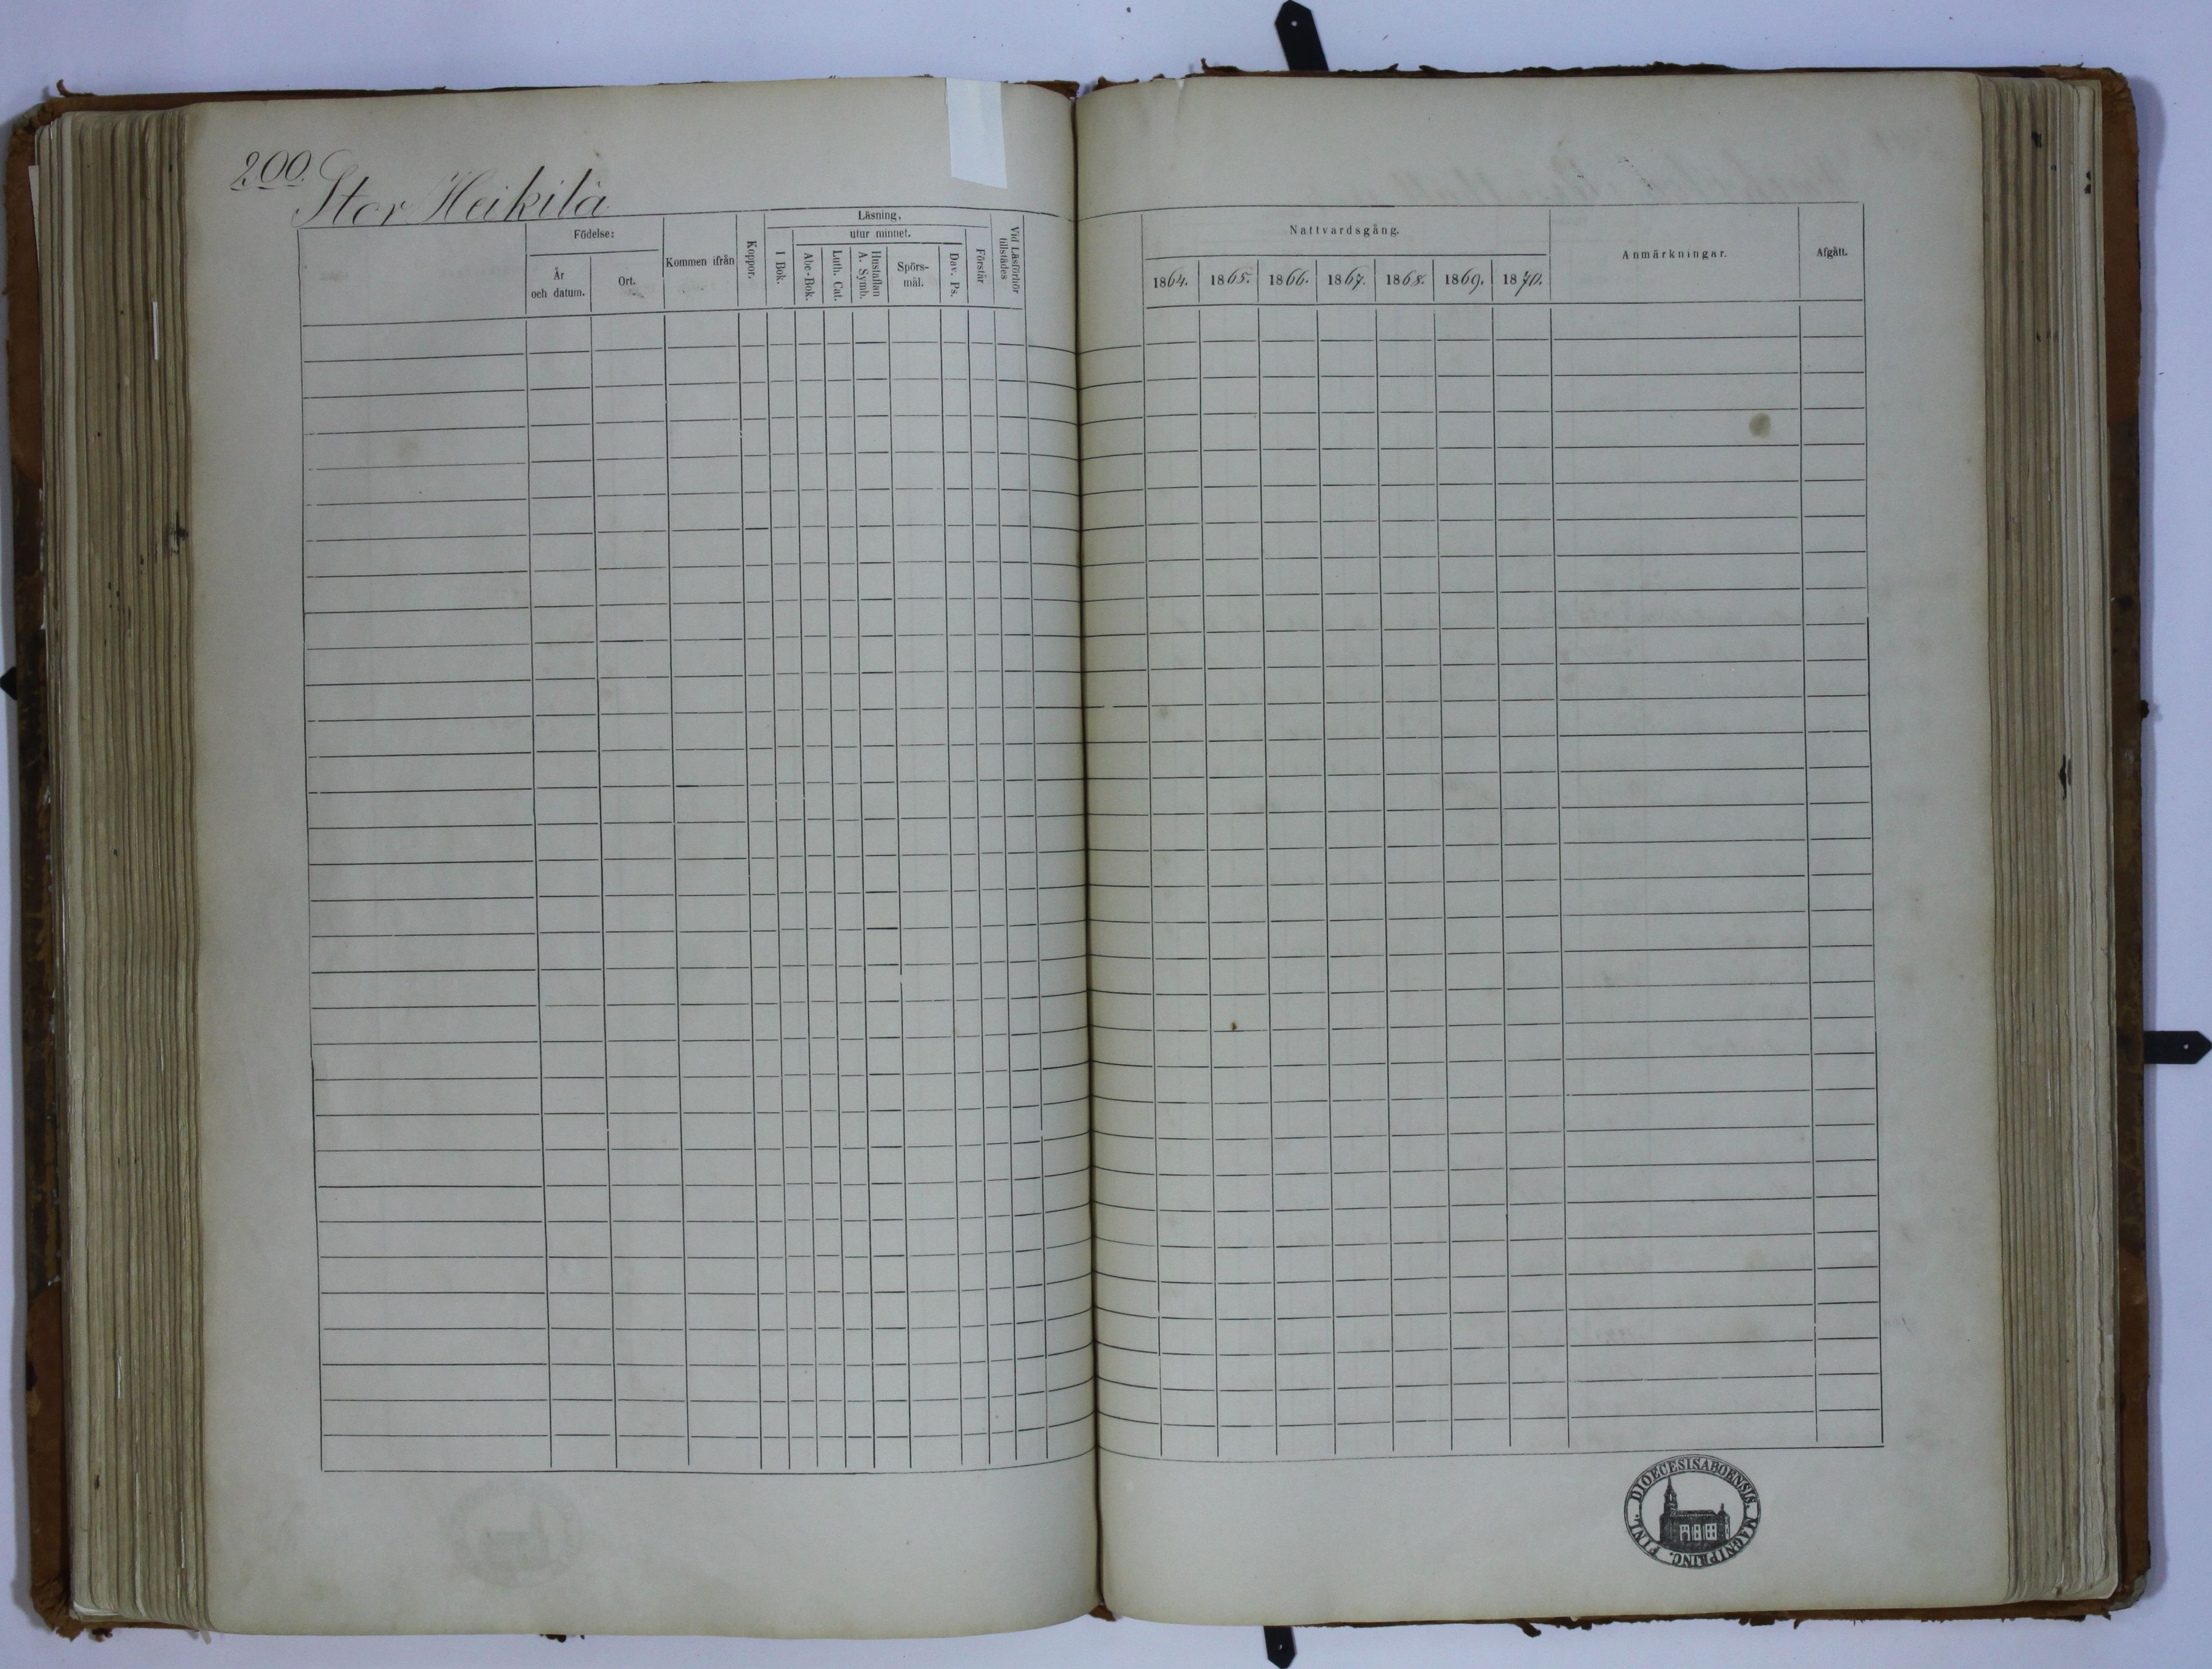 200.
Stor Heikilä
Födelse:
År
och datum.
Ort.
Kommen ifrån
Koppor.
Läsning,
utur minnet.
I Bok.
Abc-Bok.
Luth. Cat.
Hustaflan
A. Symb.
Spörs-
mål.
Dav. Ps.
Förstår
Vid Läsförhör
tillstädes
Nattvardsgång.
1864.
1865.
1866.
1867.
1868.
1869.
1870.
Anmärkningar.
Afgått.
DIOECESIS ABOENSIS. MAGNI PRINC. FINL.